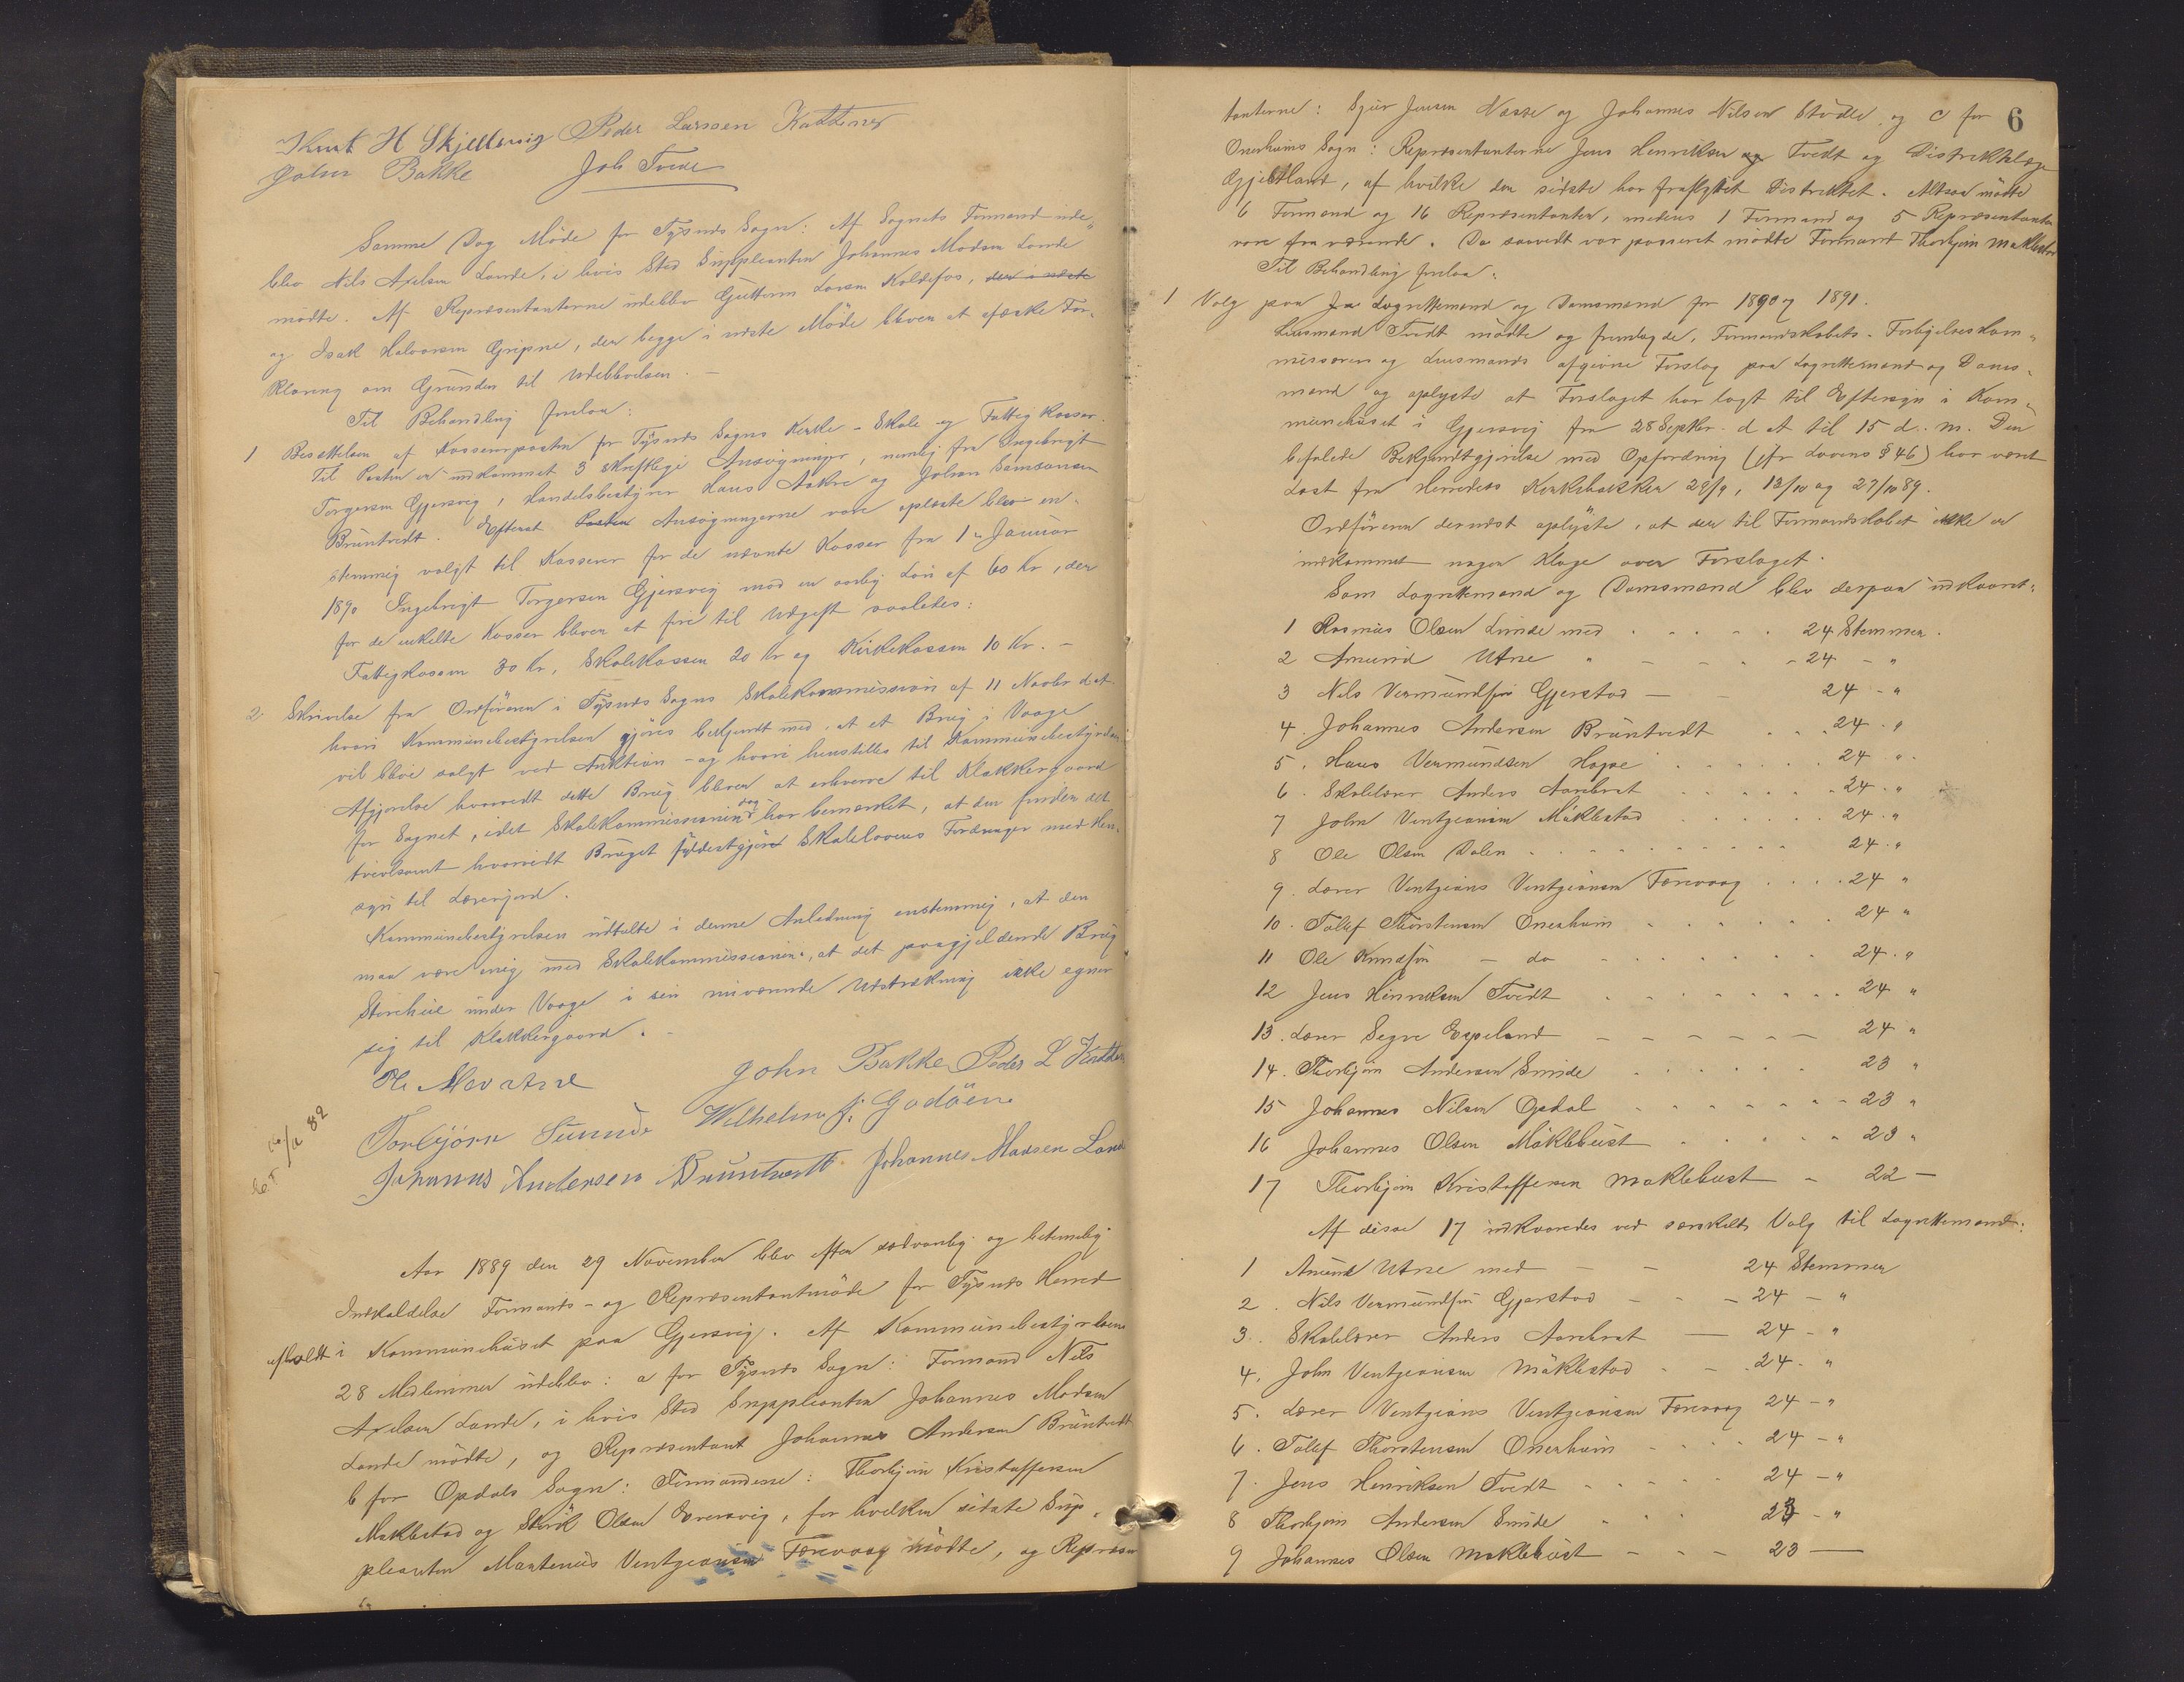 Knut H Skjellevig Peder Larssen Kattenes
John Bakke Joh Tveit
Samme Dag Møde for Tysnes Sogn: Af Sognets Formænd ude„
blev Nils Axelsen Lande, i hvis Sted Suppleanten Johannes Madsen Lande
mødte. Af Repræsentanterne udeblev Guttorm Larsen Koldefos,
og Isak Halvorsen Gripne, der begge i næste Møde bliver at afæske For„
klaring om Grunden til Udeblivelsen. –
Til Behandling forelaa:
1 Besættelsen af Kassererposten for Tysnes Sogns Kirke- Skole og Fattigkasser.
Til Posten er indkommet 3 skriftlige Ansøgninger, nemlig fra Ingebrigt
Torgersen Gjersvig, Handelsbestyrer Hans Aakre og Johan Samsonsen
Bruntvedt. Efterat Ansøgningerne vare oplæste blev en„
stemmig valgt til Kasserer for de nævnte Kasser fra 1 Januar
1890 Ingebrigt Torgersen Gjersvig mod en aarlig Løn af 60 Kr, der
for de enkelte Kasser bliver at føre til Udgift saaledes:
Fattigkassen 30 Kr, Skolekassen 20 Kr og Kirkekassen 10 Kr. –
2 Skrivelse fra Ordføreren i Tysnes Sogns Skolekommission af 11 Novbr d. A.
hvori Kommunebestyrelsen gjøres bekjendt med, at et Brug i Vaage
vil blive solgt ved Auktion – og hvori henstilles til Kommunebestyrelsens
Afgjørelse hvorvidt dette Brug bliver at erhverve til Klokkergaard
for Sognet, idet Skolekommissionen dog har bemærket, at den finder det
tvivlsomt hvorvidt Bruget fyldestgjør Skolelovens Fordringer med Hen„
syn til Lærerjord.
Kommunebestyrelsen udtalte i denne Anledning enstemmig, at den
maa være enig med Skolekommissionen, at det paagjeldende Brug
Storheie under Vaage i sin nuværende Udstrækning ikke egner
sig til Klokkergaard.
John Bakke Peder L Katten
Torbjørn Sunnde Wilhelm J. Godøen
Johannes Andersen Bruntvedt Johannes Madsen Lande
Aar 1889 den 29 November blev efter sædvanlig og betimelig
Indkaldelse Formands- og Repræsentantmøde for Tysnes Herred
afholdt i Kommunehuset paa Gjersvig. Af Kommunebestyrelsens
28 Medlemmer udeblev: a for Tysnes Sogn: Formand Nils
Axelsen Lande, i hvis Sted Suppleanten Johannes Madsen
Lande mødte, og Repræsentant Johannes Andersen Bruntvedt
b for Opdals Sogn: Formændene: Thorbjørn Kristoffersen
Møklestad og Størk Olsen Øvrevig, for hvilken sidste Sup„
pleanten Martenius Ventzeansen Færevaag mødte, og Repræsen
6
tanterne: Sjur Jensen Næsse og Johannes Nilsen Stødle og c for
Onarheims Sogn: Repræsentanterne Jens Henriksen Tvedt og Distriktslæge
Gjeldland, af hvilke den sidste har fraflyttet Distriktet. Altsaa mødte
6 Formænd og 16 Repræsentanter, medens 1 Formand og 5 Repræsentanter
vare fraværende. Da saavidt var passeret mødte Formand Thorbjørn Møklestad
Til Behandling forelaa:
1 Valg paa Lagrettemænd og Domsmænd for 1890 og 1891.
Lensmand Tvedt mødte og fremlagde, Formandskabets- Forligelseskom„
missærens og Lensmands afgivne Forslag paa Lagrettemænd og Doms„
mænd og oplyste at Forslaget har lagt til Eftersyn i Kom„
munehuset i Gjersvig fra 28 Septbr. d A til 15 d. M. Den
befalede Bekjendtgjørelse med Opfordring (jfr Lovens § 46) har været
læst fra Herredets Kirkebakker 29/9, 13/10 og 27/10 89.
Ordføreren dernæst oplyste, at der til Formandskabet ikke er
indkommet nogen Klage over Forslaget.
Som Lagrettemænd og Domsmænd blev derpaa udkaaret:
1 Rasmus Olsen Lunde med 24 Stemmer.
2 Amund Utne „ 24 „
3 Nils Vermundsøn Gjerstad 24 „
4. Johannes Andersen Bruntvedt 24 „
5. Hans Vermundsen Hope 24 „
6. Skolelærer Anders Aarebrot 24 „
7 John Ventzeansen Møklestad 24 „
8 Ole Olsen Dalen 24 „
9. Lærer Ventzeans Ventzeansen Færevaag 24 „
10. Tollef Thorstensen Onarheim 24 „
11 Ole Knudsøn – do 24 „
12 Jens Henriksen Tvedt 24 „
13. Lærer Segre Espeland 24 „
14. Thorbjørn Andersen Sunde 23 „
15 Johannes Nilsen Opdal 23 „
16 Johannes Olsen Møklebust 23 „
17 Thorbjørn Kristoffersen Møklebust 22 –
Af disse 17 udkaaredes ved særskilt Valg til Lagrettemænd:
1 Amund Utne med 24 Stemmer
2. Nils Vermundsøn Gjerstad 24 „
3. Skolelærer Anders Aarebrot 24 „
4. John Ventzeansen Møklestad 24 „
5. Lærer Ventzeans Ventzeansen Færevaag 24 „
6. Tollef Thorstensen Onarheim 24 „
7. Jens Henriksen Tvedt 24 „
8 Thorbjørn Andersen Sunde 23 „
9 Johannes Olsen Møklebust 23 –